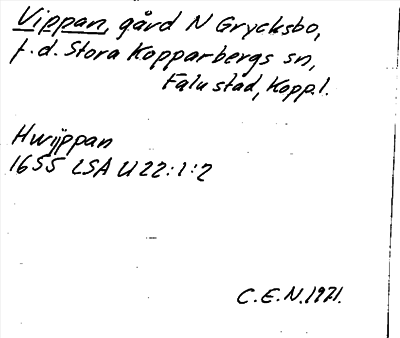 Vippan, gård N Grycksbo,
f.d. Stora Kopparbergs sn,
Falu stad, Kopp.l.
Hwijppan
1655 LSA U22:1:2
C.E.N. 1971.